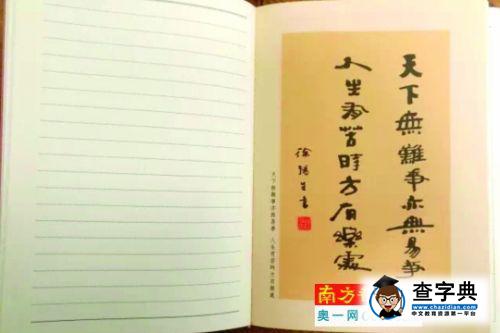 天下無難事亦無易事
人生有苦時方有樂處
徐揚生書
天下無難事亦無易事 人生有苦時方有樂處
南方
奥一网
查字典
中文教育资源第一平台